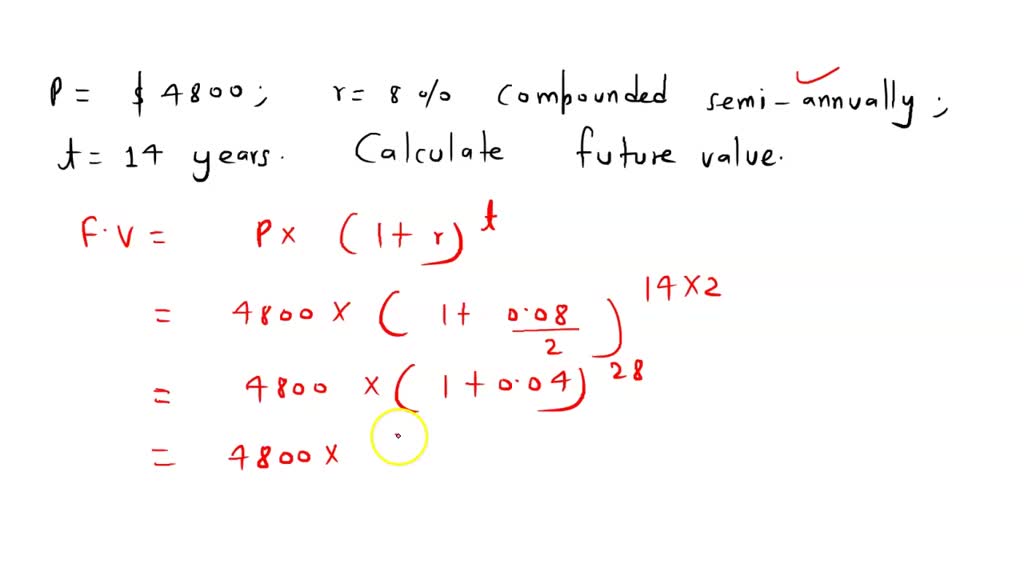 P = $ 4800; r = 8 % compounded semi-annually;
t = 14 years. Calculate future value.
F.V = P x (1 + r)^t
= 4800 x (1 + 0.08/2)^14x2
= 4800 x (1 + 0.04)^28
= 4800 x